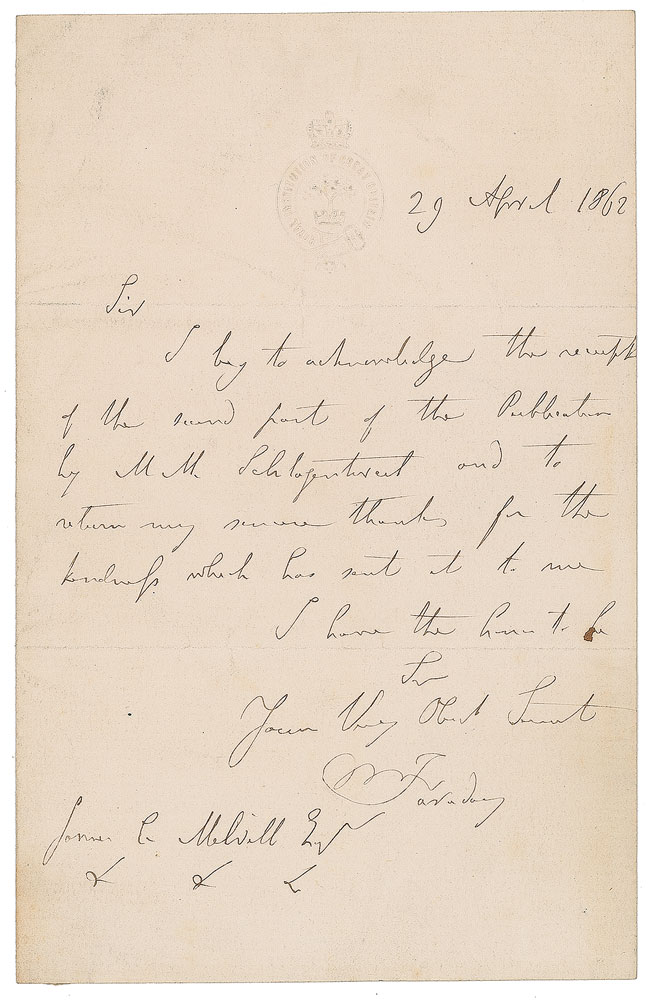 ROYAL INSTITUTION OF GREAT BRITAIN
29 April 1862
Sir
I beg to acknowledge the receipt
of the second part of the Publication
by M M. Schlagentweit and to
return my sincere thanks for the
kindness which has sent it to me
I have the honor to be
Sir
Your Very Obedt Servant
M Faraday
James C. Melvill Esqr
& & &